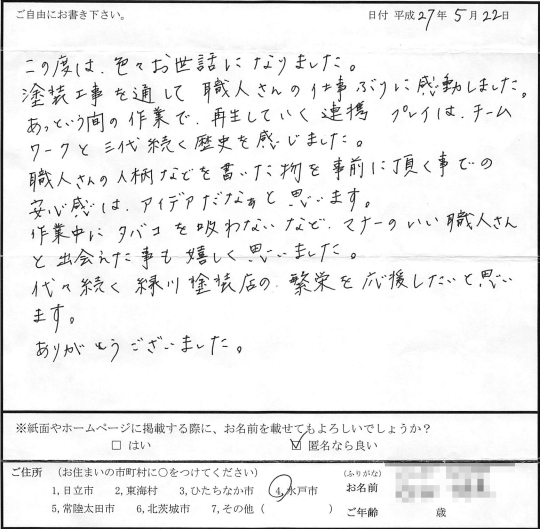 ご自由にお書き下さい。
日付 平成27年5月22日
この度は、色々お世話になりました。
塗装工事を通して 職人さんの仕事ぶりに感動しました。
あっという間の作業で、再生していく連携 プレイは、チーム
ワークと三代続く歴史を感じました。
職人さんの人柄などを書いた物を事前に頂く事での
安心感は、アイデアだなぁと思います。
作業中にタバコを吸わないなど、マナーのいい職人さん
と出会えた事も嬉しく思いました。
代々続く緑川塗装店の、繁栄を応援したいと思い
ます。
ありがとうございました。
※紙面やホームページに掲載する際に、お名前を載せてもよろしいでしょうか?
□ はい ☑ 匿名なら良い
ご住所 (お住まいの市町村に○をつけてください)
1,日立市 2,東海村 3,ひたちなか市 4,水戸市
5,常陸太田市 6,北茨城市 7,その他(   )
(ふりがな)
お名前
ご年齢 歳